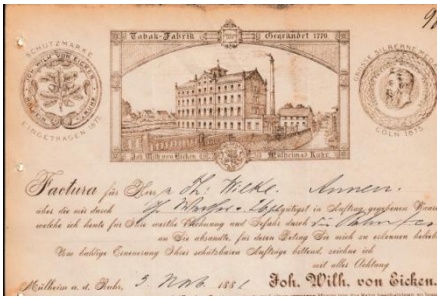 Tabak-Fabrik Gegründet 1770
SCHUTZMARKE
JOH. WILH. VON EICKEN
EINGETRAGEN 1875
GROSSE SILBERNE MED
CÖLN 1875
Joh. Wilh. von Eicken Mülheim a. Ruhr.
Factura für Herr Th. Wilke. Annen.
über die mir durch gütigst in Auftrag gegebenen Waaren
welche ich heute für Ihre werthe Rechnung und Gefahr durch
an Sie absandte, für deren Betrag Sie mich zu erkennen belieben
Um baldige Erneuerung Ihrer schätzbaren Aufträge bittend, zeichne ich
mit aller Achtung
Mülheim a. d. Ruhr, 3 Nov. 188 Joh. Wilh. von Eicken.